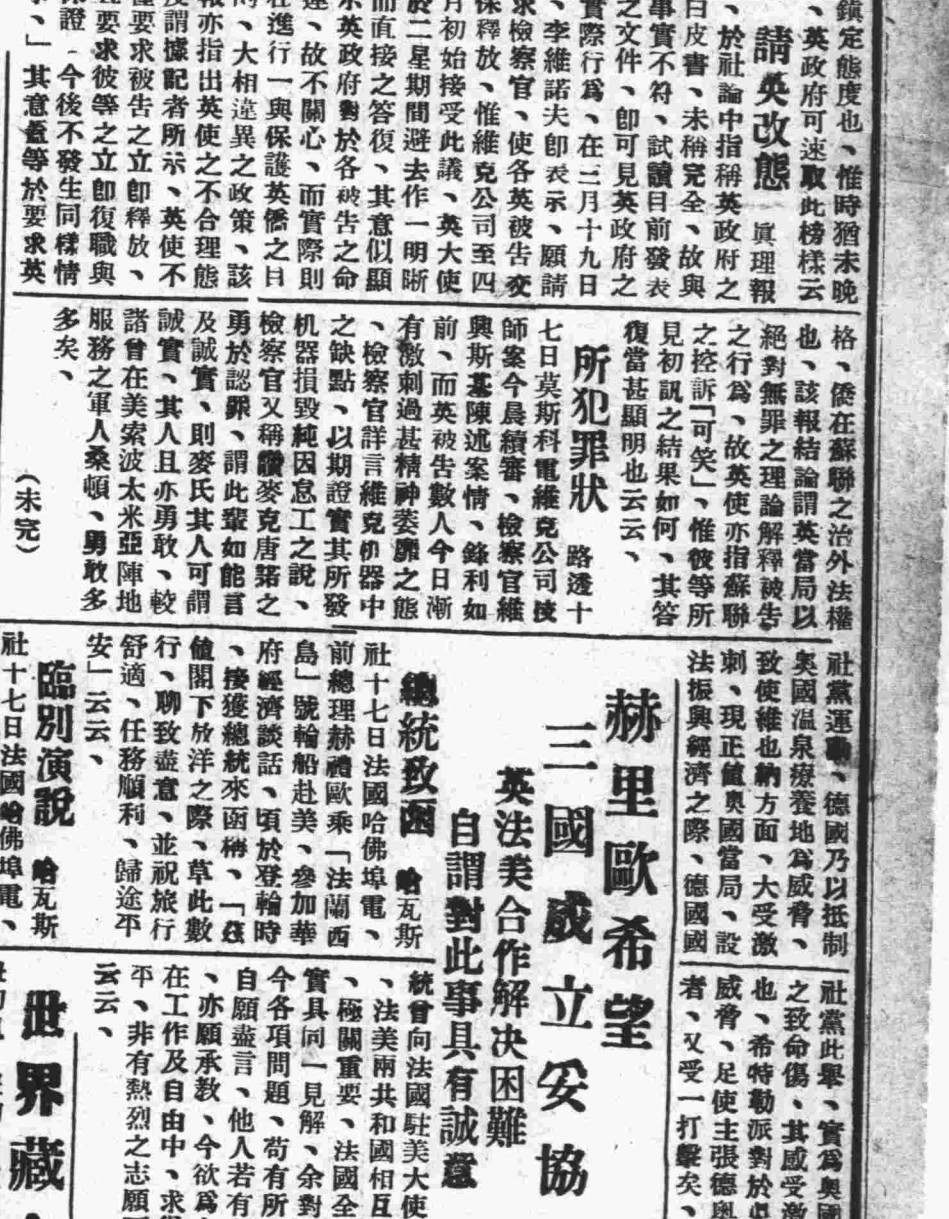 鎮定態度也、惟時猶未晚
、英政府可速取此榜樣云
請英改態　眞理報
、於社論中指稱英政府之
白皮書、未稱完全、故與
事實不符、試讀目前發表
之文件、卽可見英政府之
實際行爲、在三月十九日
、李維諾夫卽表示、願請
求檢察官、使各英被告交
保釋放、惟維克公司至四
月初始接受此議、英大使
於二星期間避去作一明晰
而直接之答復、其意似顯
示英政府對於各被告之命
運、故不關心、而實際則
在進行一與保護英僑之目
的、大相違異之政策、該
報亦指出英使之不合理態
度謂據記者所示、英使不
僅要求被告之立卽釋放、
且要求彼等之立卽復職與
保證、今後不發生同樣情
、」其意蓋等於要求英
格、僑在蘇聯之治外法權
也、該報結論謂英當局以
絕對無罪之理論解釋被告
之行爲、故英使亦指蘇聯
之控訴「可笑」、惟彼等所
見初訊之結果如何、其答
復當甚顯明也云云、
所犯罪狀　路透十
七日莫斯科電維克公司技
師案今晨續審、檢察官維
興斯基陳述案情、鋒利如
前、而英被告數人今日漸
有激刺過甚精神萎靡之態
、檢察官詳言維克机器中
之缺點、以期證實其所發
机器損毀純因怠工之說、
檢察官又稱讚麥克唐諾之
勇於認罪、謂此輩如能言
及誠實、則麥氏其人可謂
誠實、其人且亦勇敢、較
諸曾在美索波太米亞陣地
服務之軍人桑頓、勇敢多
多矣、
（未完）
社黨運動、德國乃以抵制
奧國溫泉療養地爲威脅、
致使維也納方面、大受激
刺、現正値奧國當局、設
法振興經濟之際、德國國
社黨此舉、實爲奧國
之致命傷、其感受激
也、希特勒派對於此
威脅、足使主張德奧
者、又受一打擊矣、
赫里歐希望
三國成立妥協
英法美合作解決困難
自謂對此事具有誠意
總統致函　哈瓦斯
社十七日法國哈佛埠電、
前總理赫禮歐乘「法蘭西
島」號輪船赴美、參加華
府經濟談話、頃於登輪時
、接獲總統來函稱、「茲
値閣下放洋之際、草此數
行、聊致盡意、並祝旅行
舒適、任務順利、歸途平
安」云云、
臨別演說　哈瓦斯
社十七日法國哈佛埠電、
統曾向法國駐美大使
、法美兩共和國相互
、極關重要、法國全
實具同一見解、余對
今各項問題、苟有所
自願盡言、他人若有
、亦願承敎、今欲爲
在工作及自由中、求
平、非有熱烈之志願
云云、
世界藏